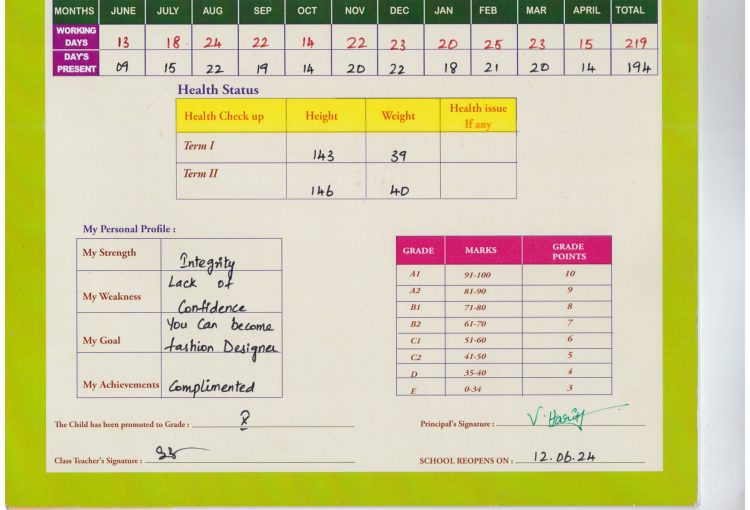 MONTHS JUNE JULY AUG SEP OCT NOV DEC JAN FEB MAR APRIL TOTAL
WORKING DAYS 13 18 24 22 14 22 23 20 25 23 15 219
DAY'S PRESENT 09 15 22 19 14 20 22 18 21 20 14 194
Health Status
Health Check up Height Weight Health issue If any
Term I 143 39
Term II 146 40
My Personal Profile :
My Strength Integrity
My Weakness Lack of Confidence
My Goal You Can become fashion Designer
My Achievements Complimented
GRADE MARKS GRADE POINTS
A1 91-100 10
A2 81-90 9
B1 71-80 8
B2 61-70 7
C1 51-60 6
C2 41-50 5
D 35-40 4
E 0-34 3
The Child has been promoted to Grade :
Principal's Signature :
Class Teacher's Signature :
SCHOOL REOPENS ON : 12.06.24